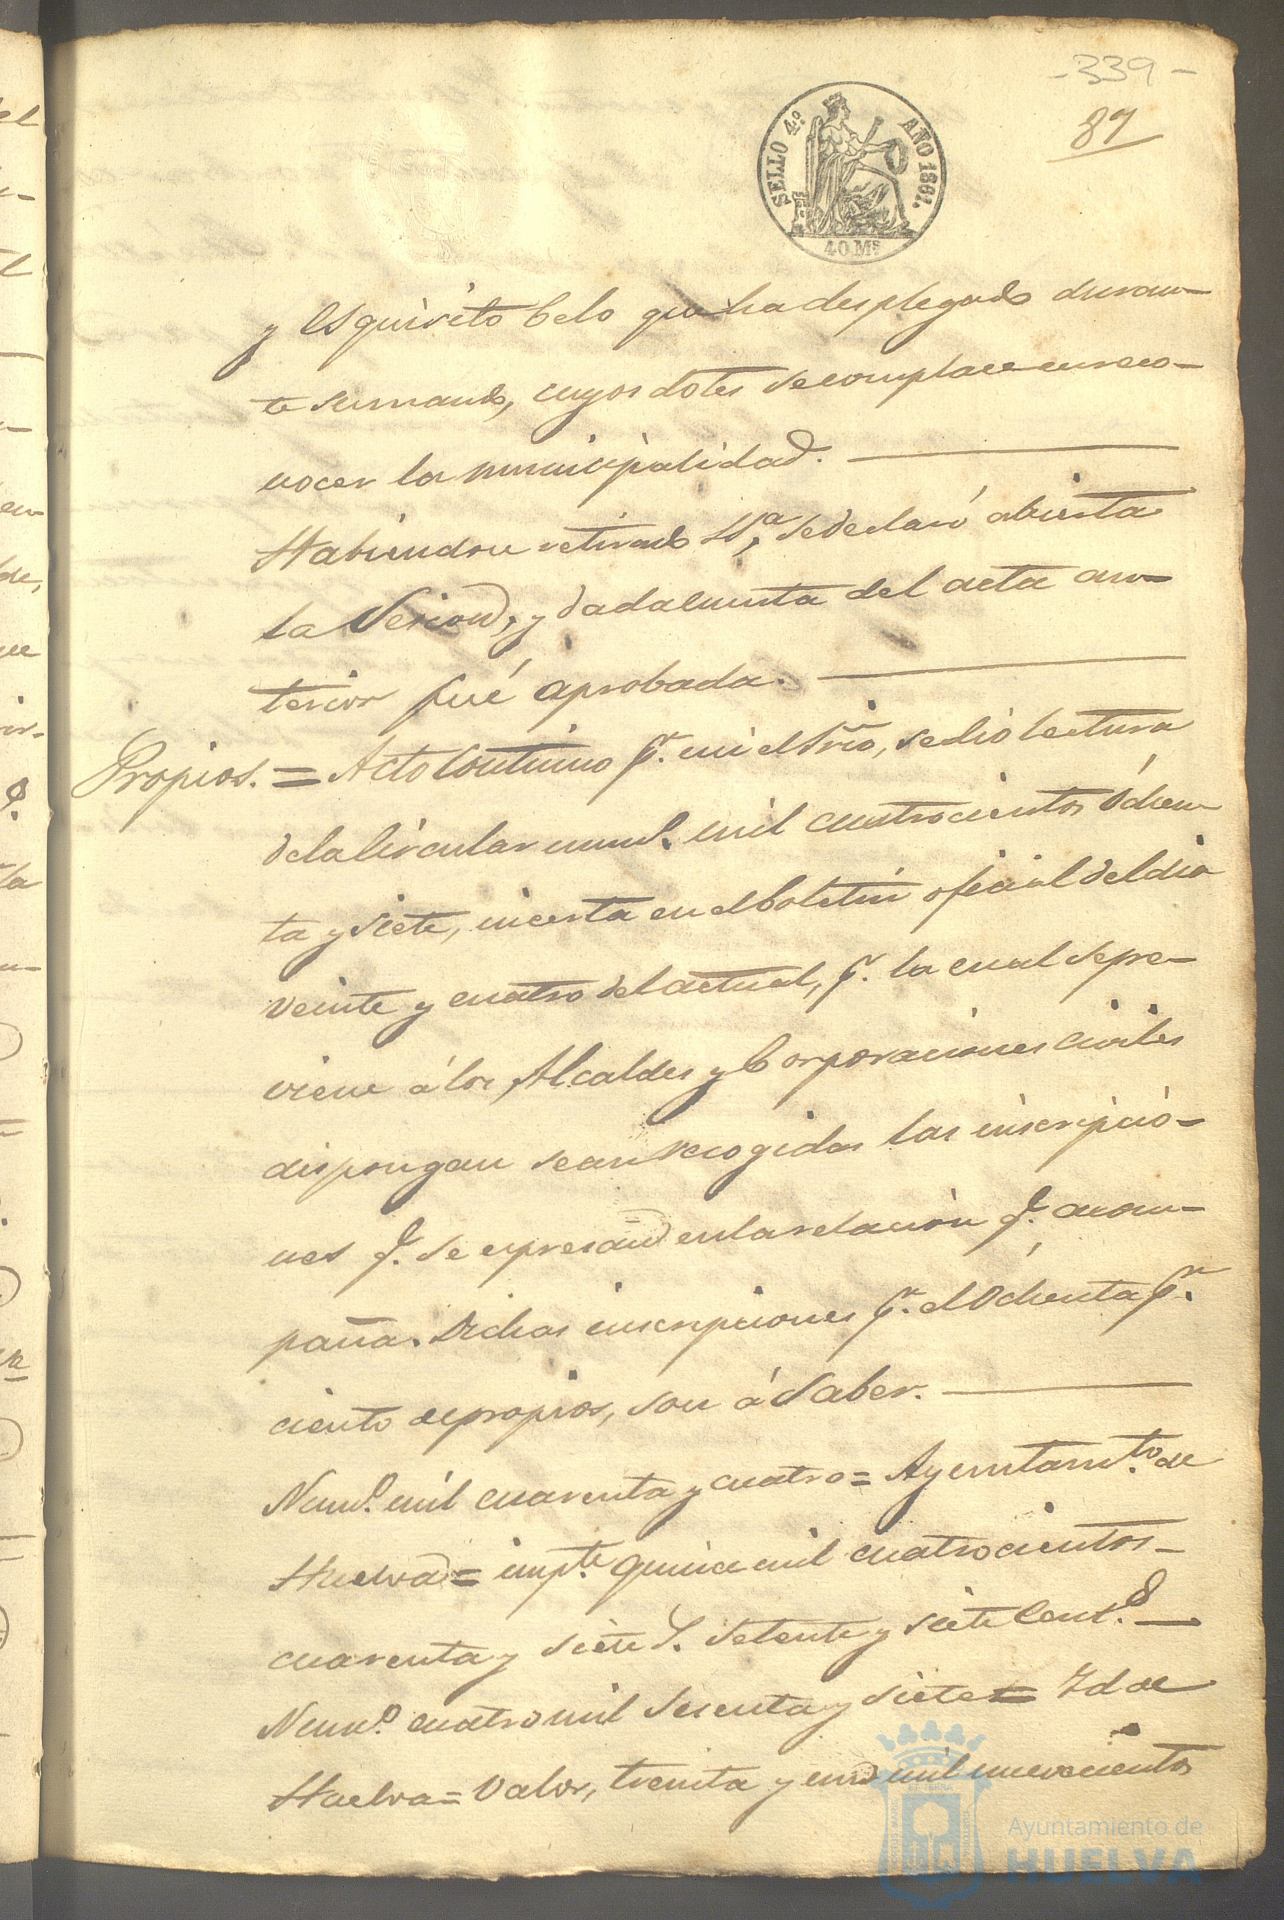 -339-
87
SELLO 4º AÑO 1861.
40 Ms
y esquisito Celo que ha desplegado duran-
te su mando, cuyos dotes se complace en reco-
nocer la municipalidad.
Habiendose retirado SSª, se declaró abierta
la Sesion, y dada cuenta del acta an-
terior fué aprobada.
Propios. = Acto Continuo pr. mi el Srio, se dio lectura
de la Circular numo. mil cuatrocientos Ochen-
ta y siete, incerta en el boletin oficial del dia
veinte y cuatro del actual, pr. la cual se pre-
viene á los Alcaldes y Corporaciones civiles
dispongan sean recogidas las inscripcio-
nes q. se expresan en la relacion q. acom-
paña. Dichas inscripciones pr. el Ochenta pr.
ciento de propios, son á Saber.
Numo. mil cuarenta y cuatro = Ayuntamto. de
Huelva = impte. quince mil cuatrocientos
cuarenta y siete Setenta y siete Cents.
Numo. cuatro mil Sesenta y siete = Yd de
Huelva = Valor, treinta y un mil nuevecientos
Ayuntamiento de
HUELVA